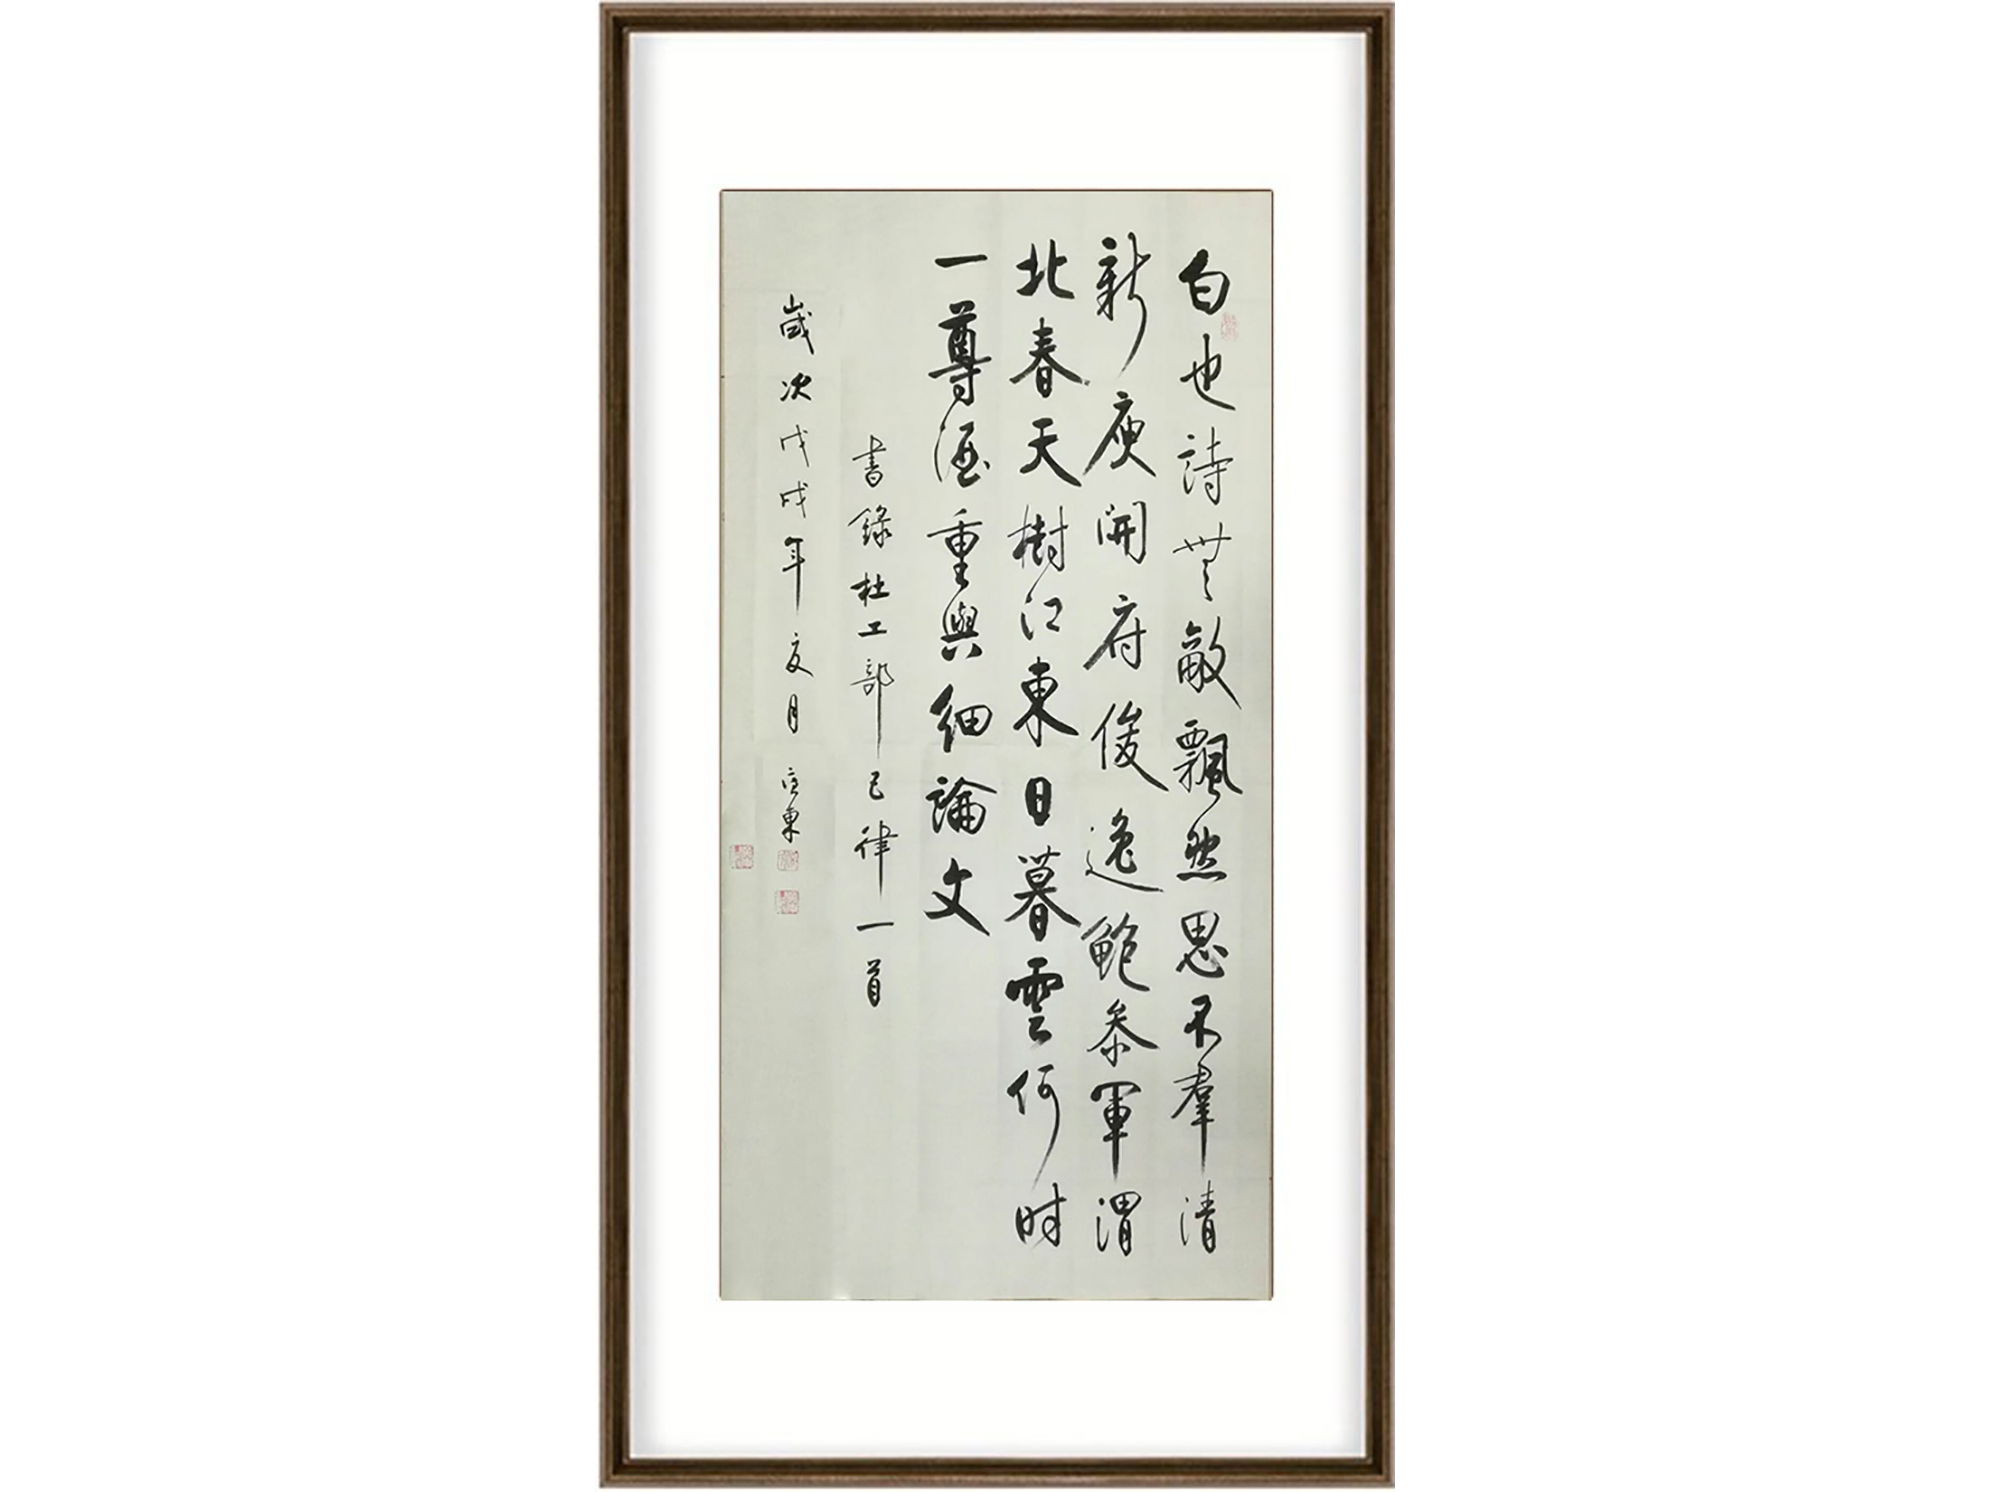 白也詩無敵飄然思不羣清
新庾開府俊逸鮑參軍渭
北春天樹江東日暮雲何時
一尊酒重與細論文
書錄杜工部五律一首
歲次戊戌年夏月